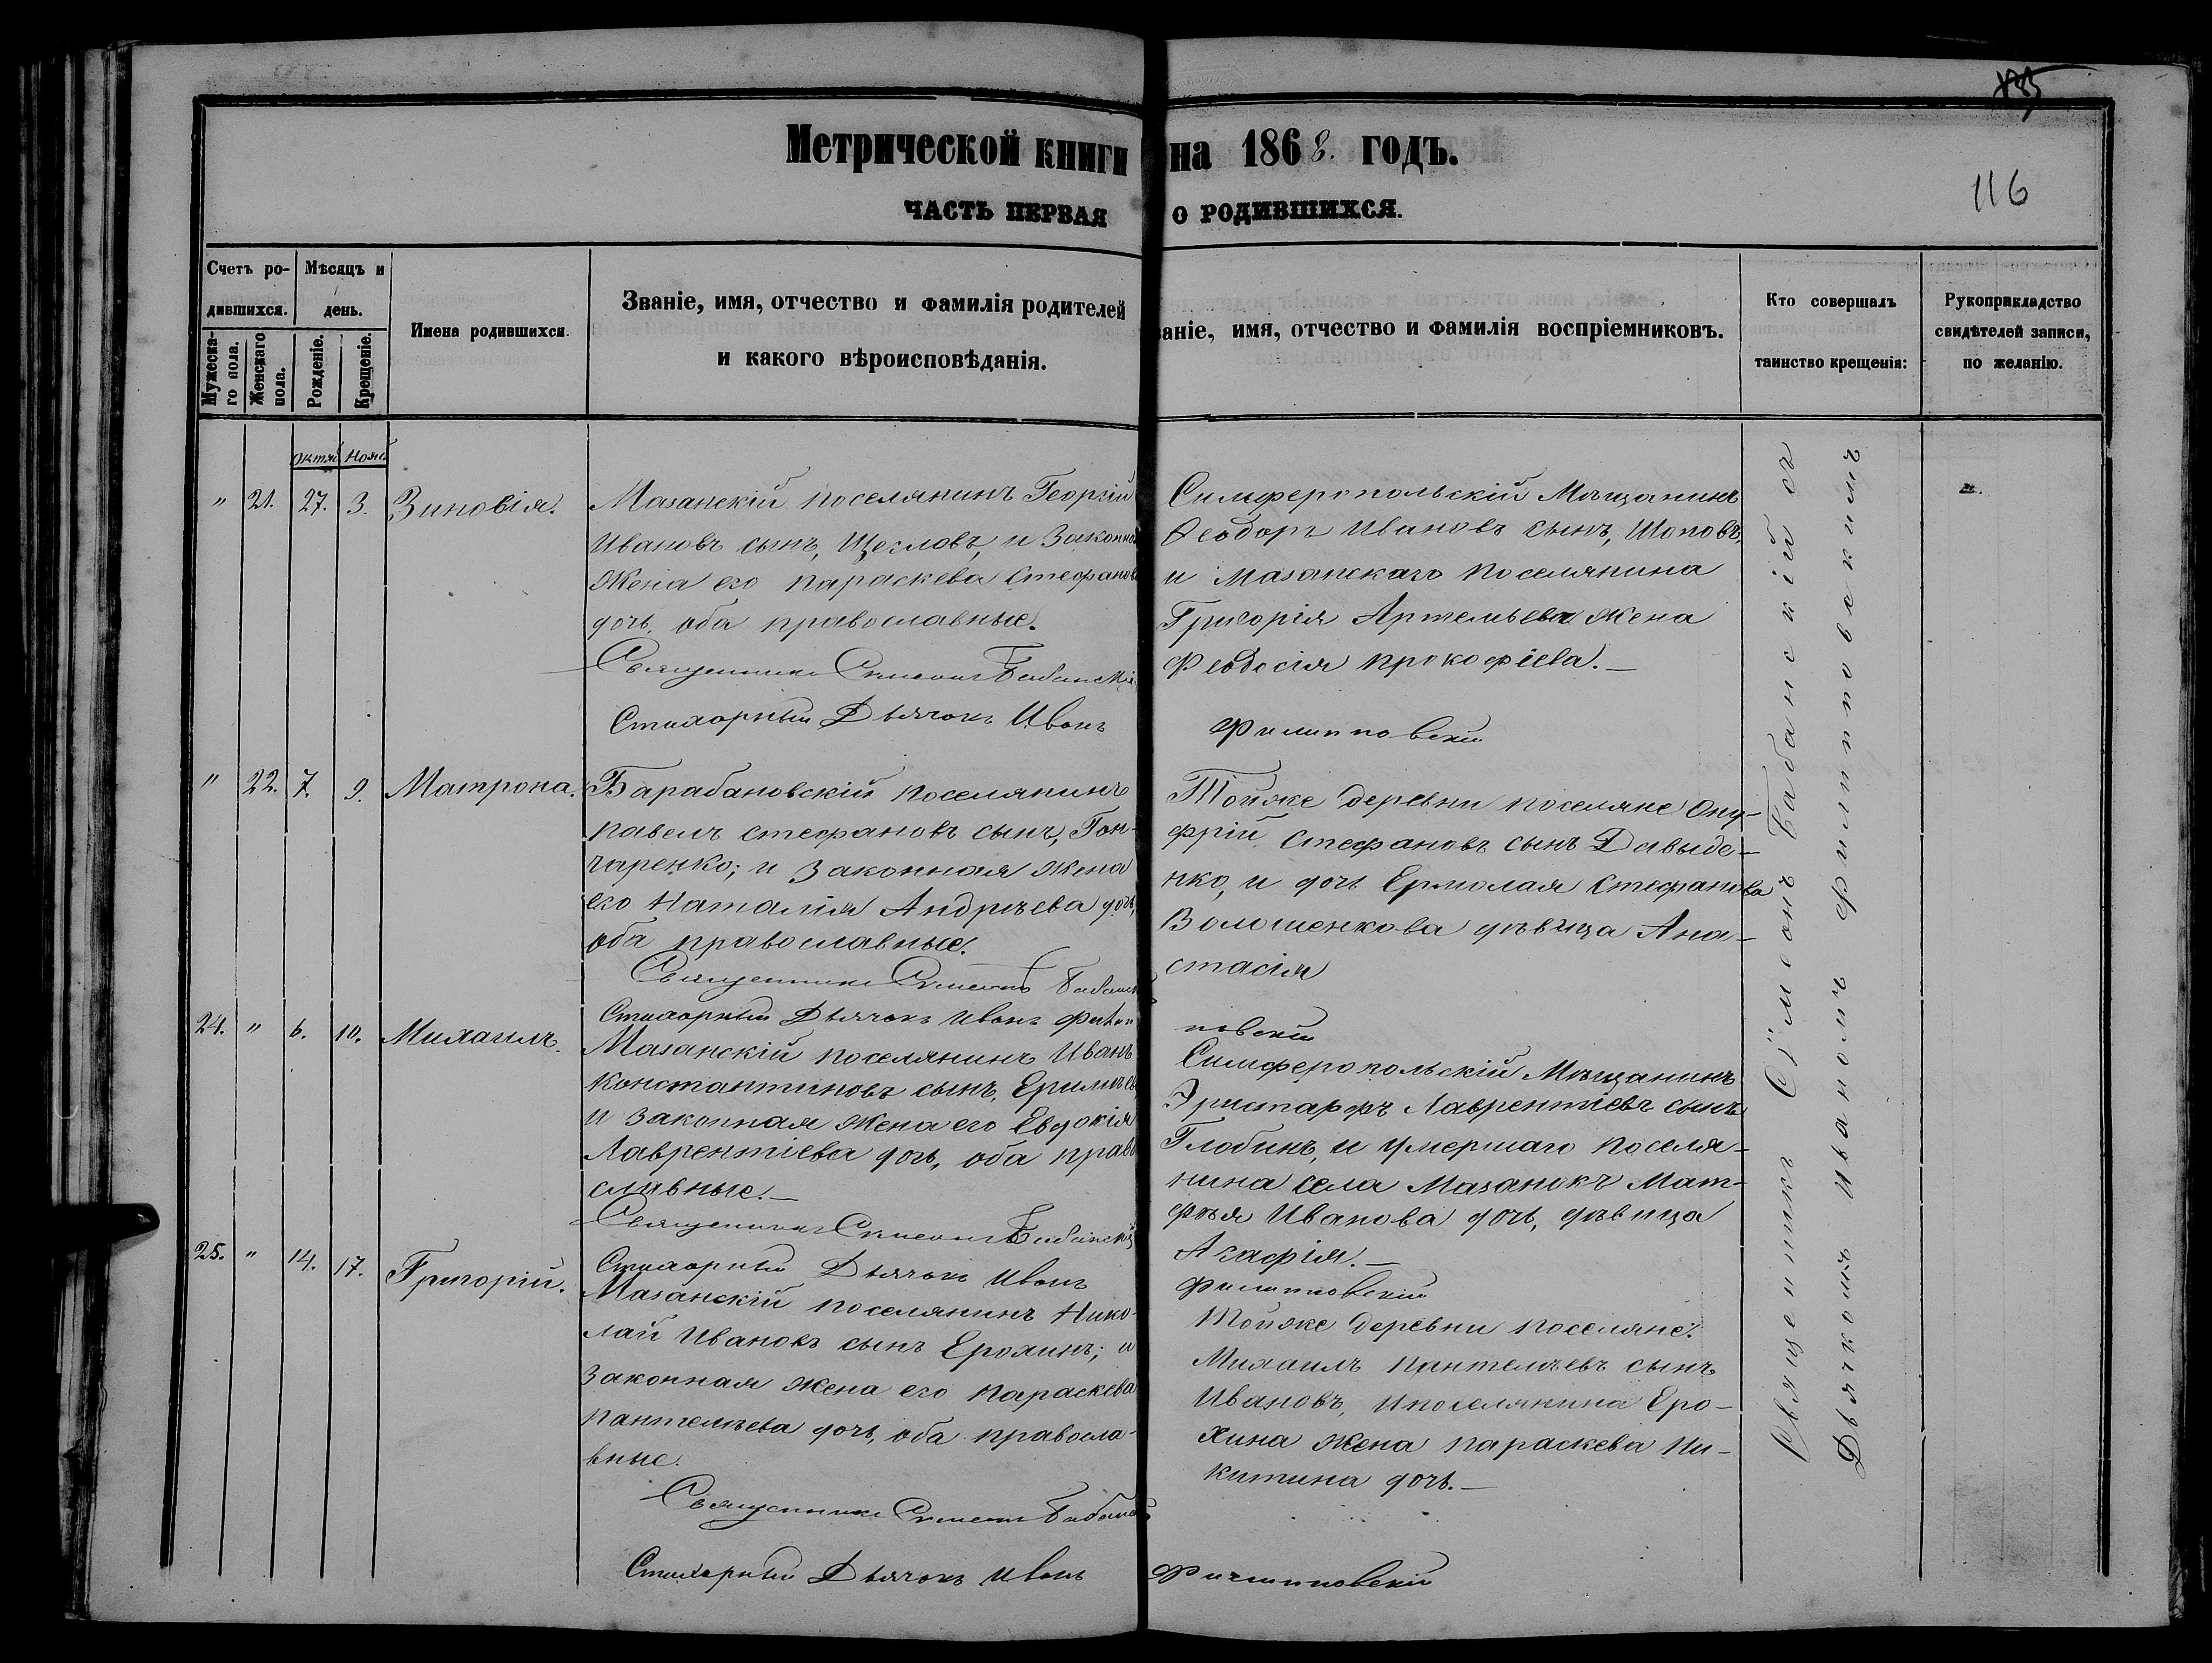 135
116
Метрической книги на 1868. годъ.
ЧАСТЬ ПЕРВАЯ О РОДИВШИХСЯ.
Счетъ ро-
дившихся.
Мужеска-
го пола.
Женскаго
пола.
Мѣсяцъ и
день.
Рожденіе.
Крещеніе.
Имена родившихся.
Званіе, имя, отчество и фамилія родителей
и какого вѣроисповѣданія.
ваніе, имя, отчество и фамилія воспріемниковъ.
Кто совершалъ
таинство крещенія:
Рукоприкладство
свидѣтелей записи,
по желанію.
Октяб Нояб
" 21. 27. 3. Зиновія.
Мазанскій поселянинъ Георгій
Ивановъ сынъ, Щегловъ, и Законная
Жена его Параскева Стефанова
дочь, оба православные.
Священникъ Сѵмеонъ Бабанскій
Стихарный Дьячокъ Иванъ
Симферопольскій Мѣщанинъ
Ѳеодоръ Ивановъ Сынъ, Шоповъ,
и Мазанскаго Поселянина
Григорія Артемьева Жена
Феодосія Прокофіева.—
Филипповскій
" 22. 7. 9. Матрона.
Барабановскій Поселянинъ
Павелъ Стефановъ сынъ, Гон-
чаренко; и Законная Жена
его Наталія Андреева дочь,
оба православные.
Священникъ Сѵмеонъ Бабанск
Стихарный Дьячокъ Иванъ Филип
Тойже деревни поселяне Ону-
фрій Стефановъ сынъ Давыде-
нко, и дочь Ермолая Стефанова
Волошенкова дѣвица Ана-
стасія
повскій
24. " 6. 10. Михаилъ.
Мазанскій поселянинъ Иванъ
Константиновъ сынъ,
и Законная Жена его Евдокія
Лаврентіева дочь, оба право
славные.—
Священникъ Сѵмеонъ Бабанскій
Стихарный Дьячокъ Иванъ
Симферопольскій Мѣщанинъ
Лаврентіевъ сынъ
Глобинъ, и умершаго поселя-
нина села Мазанокъ Мат-
фѣя Иванова дочь, дѣвица
Агафія.—
Филипповскій
25. " 14. 17. Григорій.
Мазанскій поселянинъ Нико-
лай Ивановъ сынъ Ерохинъ; и
Законная Жена его Параскева
Пантелѣева дочь, оба правосла-
вные.
Священникъ Сѵмеонъ Бабанск
Стихарный Дьячокъ Иванъ
Тойже деревни Поселяне:
Михаилъ Пантелѣевъ сынъ
Ивановъ, и поселянина Еро-
хина Жена Параскева Ни-
китина дочь.—
Филипповскій
Священникъ Сѵмеонъ Бабанскій съ
Дьячкомъ Иваномъ Филипповскимъ